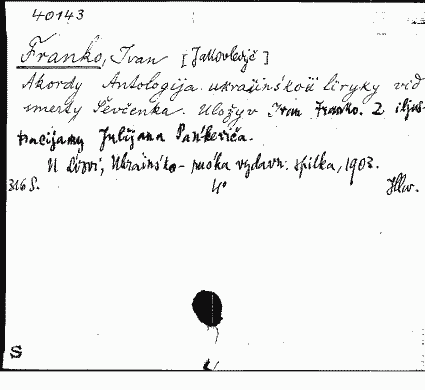 40143
Franko, Ivan [Jakovlevič]
Akordy Antologija ukraïnśkoï liryky vid
smerty Ševčenka. Uložyv Ivan Franko. Z iljus-
tracijamy Julijana Pańkeviča.
U Lvovi, Ukraïnśko-ruśka vydavn. spilka, 1903.
316 S. 4° Hlw.
S